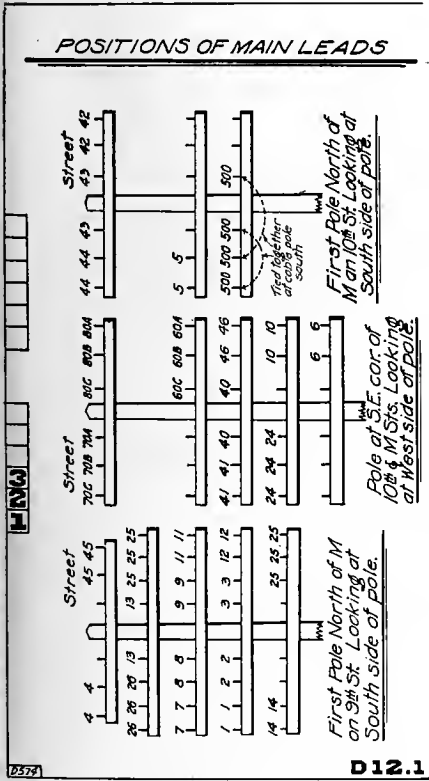 POSITIONS OF MAIN LEADS
Street
44 44 43 43 42 42
5 5
500 500 500 500
Tied together
at cable pole
south
First Pole North of
M on 10th St. Looking at
South side of pole.
Street
70C 70B 70A 80C 80B 80A
60C 60B 60A
41 41 40 40 46 46
24 24 24 10 10
6 6
Pole at S.E. cor. of
10th & M Sts. Looking
at West side of pole.
Street
4 4 45 45
26 26 26 13 13 25 25 25
7 7 8 8 9 9 11 11
1 1 2 2 3 3 12 12
14 14 25 25 25
First Pole North of M
on 9th St. Looking at
South side of pole.
D574
D12.1